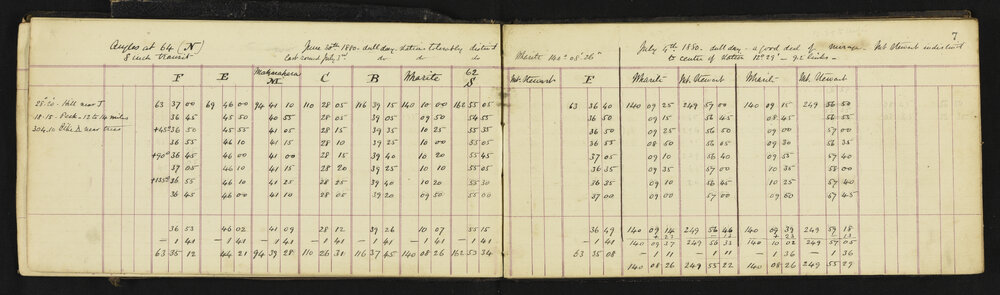 7
Angles at 64 (N) June 30th 1880 - dull day - station tolerably distinct
8 inch Transit Last round July 3rd do do do
F E Makaiahara M C B Wharite 62 S
28.20 - Hill near J 63 37 00 69 46 00 94 41 10 110 28 05 116 39 15 140 10 00 162 55 05
18.15 - Peak - 12 to 14 miles 36 45 45 50 40 55 28 05 39 05 09 50 54 55
304.10 Pike near trees +45° 36 50 45 55 41 05 28 15 39 35 10 25 55 35
36 55 46 10 41 15 28 10 39 25 10 00 55 05
+90° 36 45 46 00 41 00 28 15 39 40 10 20 55 45
37 05 46 10 41 15 28 20 39 25 10 10 55 05
+135° 36 55 46 10 41 25 28 25 39 40 10 20 55 30
36 45 46 00 41 10 28 05 39 20 09 50 55 00
36 53 46 02 41 09 28 12 39 26 10 07 55 15
- 1 41 - 1 41 - 1 41 - 1 41 - 1 41 - 1 41 - 1 41
63 35 12 44 21 94 39 28 110 26 31 116 37 45 140 08 26 162 53 34
Wharite 140° 08' 26" July 4th 1880. dull day - a good deal of mirage. Mt Stewart indistinct
to centre of station 12° 29' - 9.2 links.
Mt. Stewart E Wharite Mt. Stewart Wharite Mt. Stewart
63 36 40 140 09 25 249 57 00 140 09 15 249 56 50
36 50 09 15 56 45 08 45 56 55
36 50 09 25 56 50 09 00 57 00
36 55 08 50 56 05 09 30 56 35
37 05 09 10 56 40 09 55 57 40
36 35 09 15 57 00 10 35 58 00
36 35 09 10 56 45 10 25 57 40
37 00 09 00 57 00 09 50 57 45
36 49 140 09 14 249 56 46 140 09 39 249 57 18
+ 23 - 13 + 23 - 13
- 1 41 140 09 37 249 56 33 140 10 02 249 57 05
63 35 08 - 1 11 - 1 11 - 1 36 - 1 36
140 08 26 249 55 22 140 08 26 249 55 29